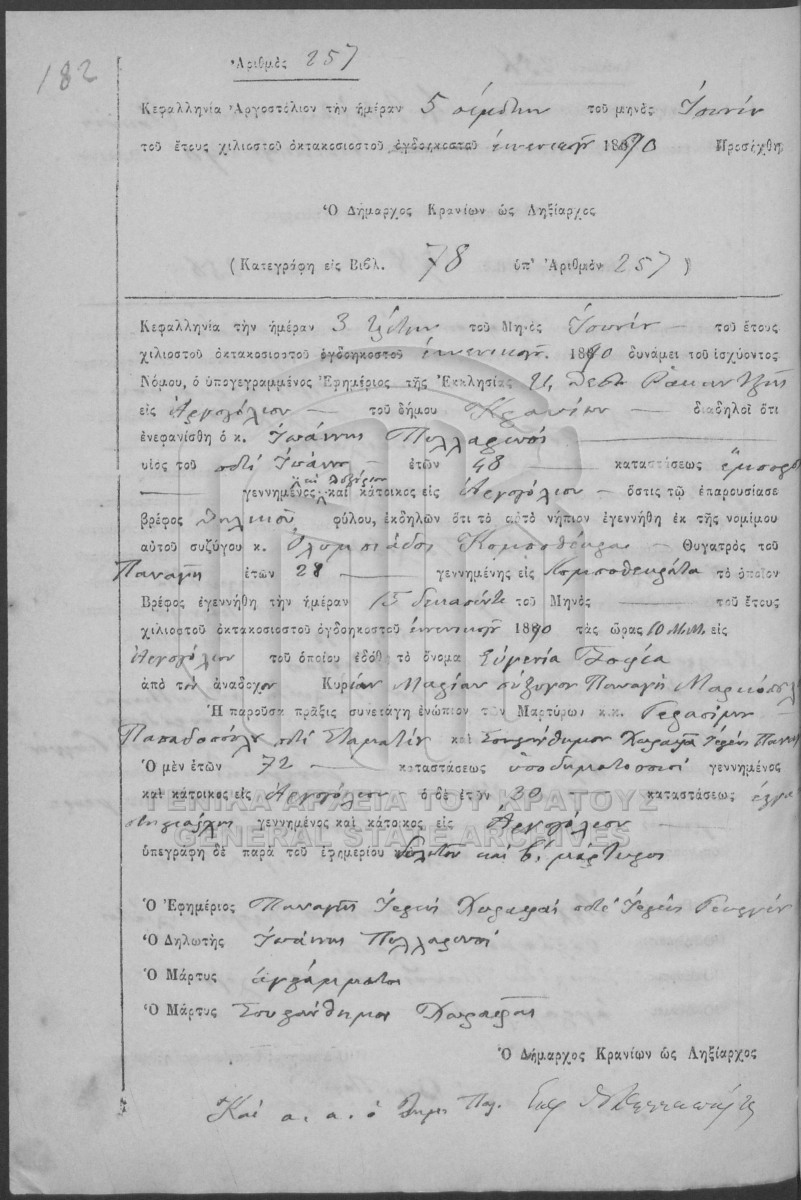 182
Ἀριθμὸς 257
Κεφαλληνία Ἀργοστόλιον τὴν ἡμέραν 5 πέμπτην τοῦ μηνὸς Ἰουνίου
τοῦ ἔτους χιλιοστοῦ ὀκτακοσιοστοῦ ὀγδοηκοστοῦ ἐννενηκοστοῦ 1890 Προσήχθη
Ὁ Δήμαρχος Κρανίων ὡς Ληξίαρχος
(Κατεγράφη εἰς Βιβλ. 78 ὑπ' Ἀριθμὸν 257)
Κεφαλληνία τὴν ἡμέραν 3 τρίτην τοῦ Μηνὸς Ἰουνίου τοῦ ἔτους
χιλιοστοῦ ὀκτακοσιοστοῦ ὀγδοηκοστοῦ ἐννενηκοστοῦ 1890 δυνάμει τοῦ ἰσχύοντος
Νόμου, ὁ ὑπογεγραμμένος Ἐφημέριος τῆς Ἐκκλησίας
εἰς Ἀργοστόλιον τοῦ δήμου Κρανίων διαδηλοῖ ὅτι
ἐνεφανίσθη ὁ κ. Ἰωάννης Πυλλαρινός
υἱὸς τοῦ ποτὲ ἐτῶν 48 καταστάσεως ἔμπορος
γεννημένος καὶ κάτοικος εἰς Ἀργοστόλιον ὅστις τῷ ἐπαρουσίασε
βρέφος θηλυκοῦ φύλου, ἐκδηλῶν ὅτι τὸ αὐτὸ νήπιον ἐγεννήθη ἐκ τῆς νομίμου
αὐτοῦ συζύγου κ. Ὀλυμπιάδος Κομποθέκρα Θυγατρὸς τοῦ
Παναγῆ ἐτῶν 28 γεννημένης εἰς Κομποθεκράτα τὸ ὁποῖον
Βρέφος ἐγεννήθη τὴν ἡμέραν 15 δεκαπέντε τοῦ Μηνὸς τοῦ ἔτους
χιλιοστοῦ ὀκτακοσιοστοῦ ὀγδοηκοστοῦ ἐννενηκοστοῦ 1890 τὰς ὥρας 10 Μ.Μ. εἰς
Ἀργοστόλιον τοῦ ὁποίου ἐδόθη τὸ ὄνομα Εὐγενία Σοφία
ἀπὸ τὸν ἀνάδοχον Κυρίαν Μαρίαν σύζυγον Παναγῆ
Ἡ παροῦσα πρᾶξις συνετάγη ἐνώπιον τῶν Μαρτύρων κ.κ. Γερασίμου
Παπαδοπούλου ποτὲ Σταματίου καὶ Χωραφᾶ Ἱερέως Παναγῆ
Ὁ μὲν ἐτῶν 72 καταστάσεως ὑποδηματοποιοῦ γεννημένος
καὶ κάτοικος εἰς Ἀργοστόλιον ὁ δὲ ἐτῶν 30 καταστάσεως
γεννημένος καὶ κάτοικος εἰς Ἀργοστόλιον
ὑπεγράφη δὲ παρὰ τοῦ ἐφημερίου δηλωτοῦ καὶ β΄ μάρτυρος
ΓΕΝΙΚΑ ΑΡΧΕΙΑ ΤΟΥ ΚΡΑΤΟΥΣ
GENERAL STATE ARCHIVES
Ὁ Ἐφημέριος Παναγῆς Ἱερεὺς Χωραφᾶς ποτὲ Ἱερέως Γεωργίου
Ὁ Δηλωτὴς Ἰωάννης Πυλλαρινός
Ὁ Μάρτυς ἀγράμματος
Ὁ Μάρτυς Χωραφᾶς
Ὁ Δήμαρχος Κρανίων ὡς Ληξίαρχος
Καὶ α. α. ὁ